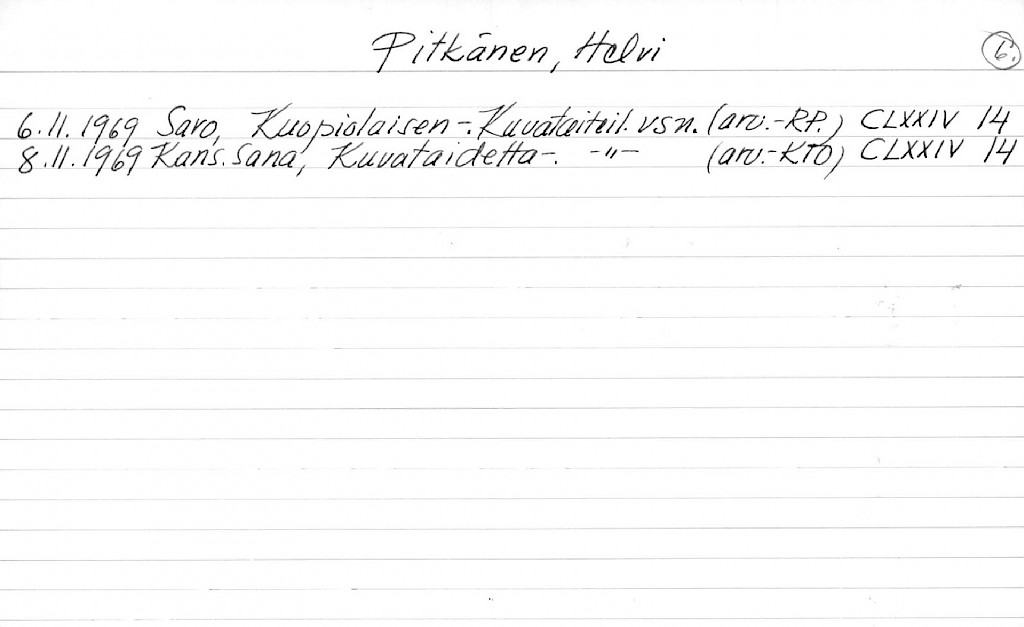 Pitkänen, Helvi 6.
6.11.1969 Savo, Kuopiolaisen-. Kuvataiteil. vsn. (arv.-R.P.) CLXXIV 14
8.11.1969 Kans. Sana, Kuvataidetta-. -"- (arv.-KTO) CLXXIV 14